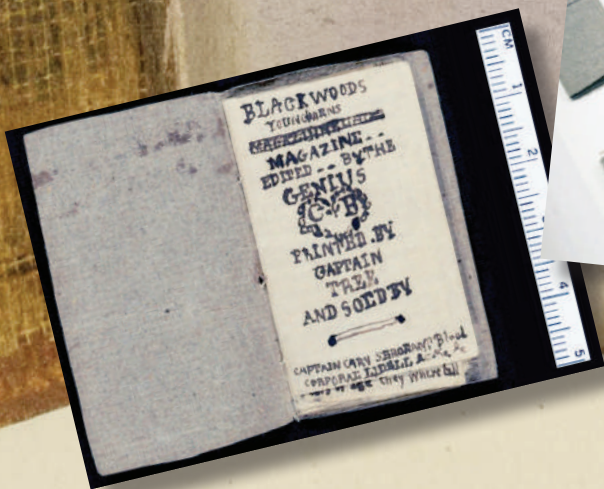 BLACKWOODS
YOUNGMENS
MAGAZINE--
EDITED -- BY THE
GENIUS
C B
PRINTED.BY
CAPTAIN
TREE
AND SOLD BY
CAPTAIN CARY
CORPORAL LIDELL
they
CM
1
2
4
5